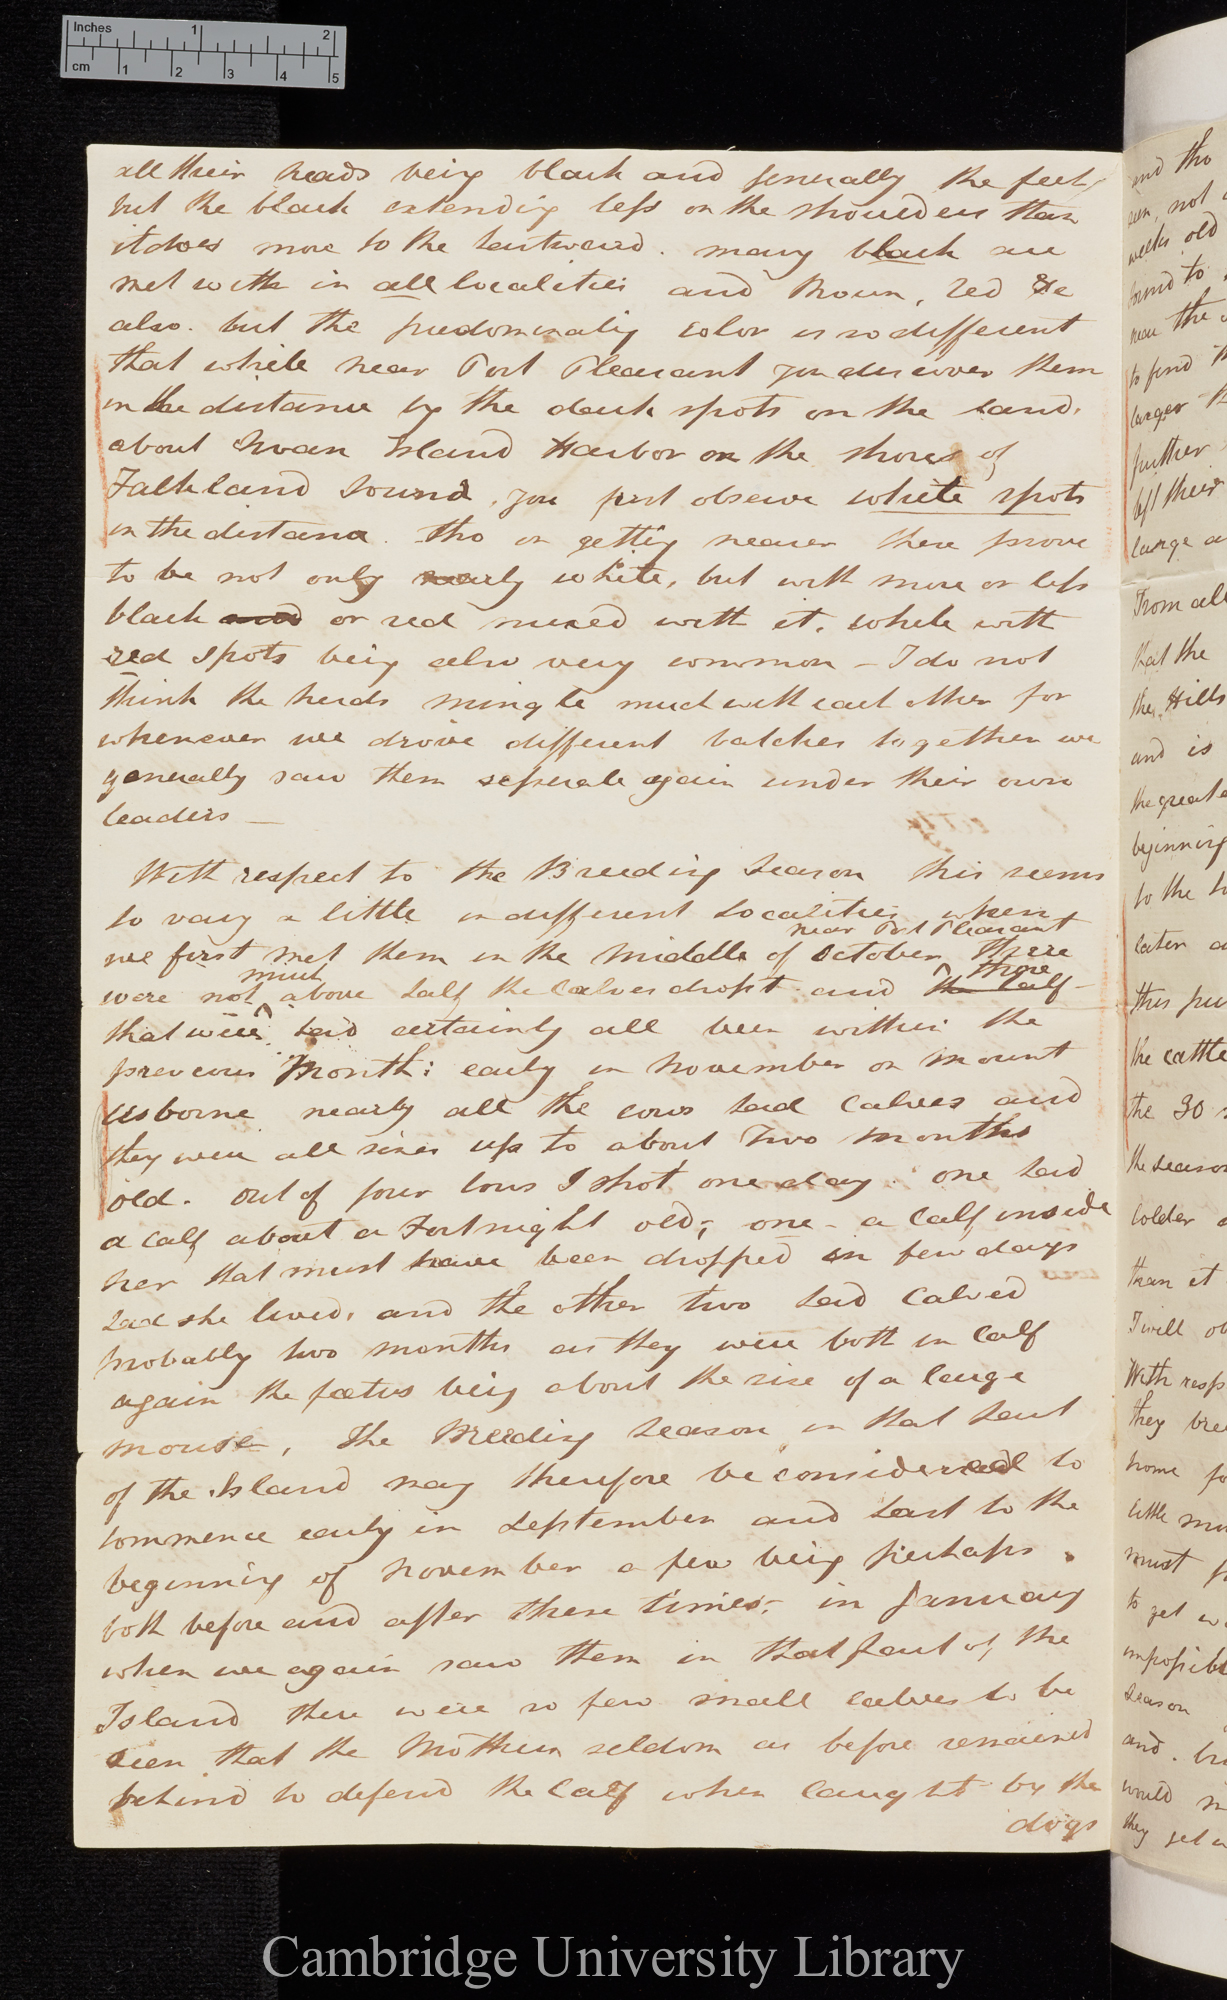 Inches 1 2
cm 1 2 3 4 5
all their heads being black and generally the feet,
but the black extending less on the shoulders than
it does more to the Eastward. many black are
met with in all localities and Brown, red &c
also. but the predominatig color is so different
that while near Port Pleasant you discover them
in the distance by the dark spots on the land,
about Swan Island Harbor on the shores of
Falkland Sound, you first observe white spots
in the distance. tho on gettig nearer these prove
to be not only nearly white, but with more or less
black and or red mixed with it. white with
red spots being also very common – I do not
think the herds mingle much with each other for
whenever we drove different batches together we
generally saw them seperate again under their own
leaders –
With respect to the Breeding Season this seems
to vary a little in different Localities when
near Port Pleasant
we first met them in the Middle of October there
much those
were not above half the calves dropt and the calf
that were had certainly all been within the
previous Month: early in November on Mount
Usborne nearly all the cows had calves and
they were all sizes up to about Two months
old. Out of four cows I shot one day. one had
a calf about a Fortnight old; one – a calf inside
her that must have been dropped in few days
had she lived, and the other two had calved
probably two months as they were both in calf
again the foetus being about the size of a large
mouse, The Breeding Season in that part
of the Island may therefore be considered to
commence early in September and last to the
beginning of November a few being perhaps
both before and after these times; in January
when we again saw them in that part of the
Island there were so few small calves to be
seen that the Mothers seldom as before remained
behind to defend the calf when caught by the
dogs
and tho
seen, not
weeks old
found to
near the
to find th
larger th
further
left their
large a
From all
that the
the Hills
and is
the greate
beginning
to the
later a
this
the cattle
the 30
the season
colder
than it
I will ob
With resp
they bree
home fo
little mo
must
to get w
impossibl
season
and. br
would m
they get
Cambridge University Library